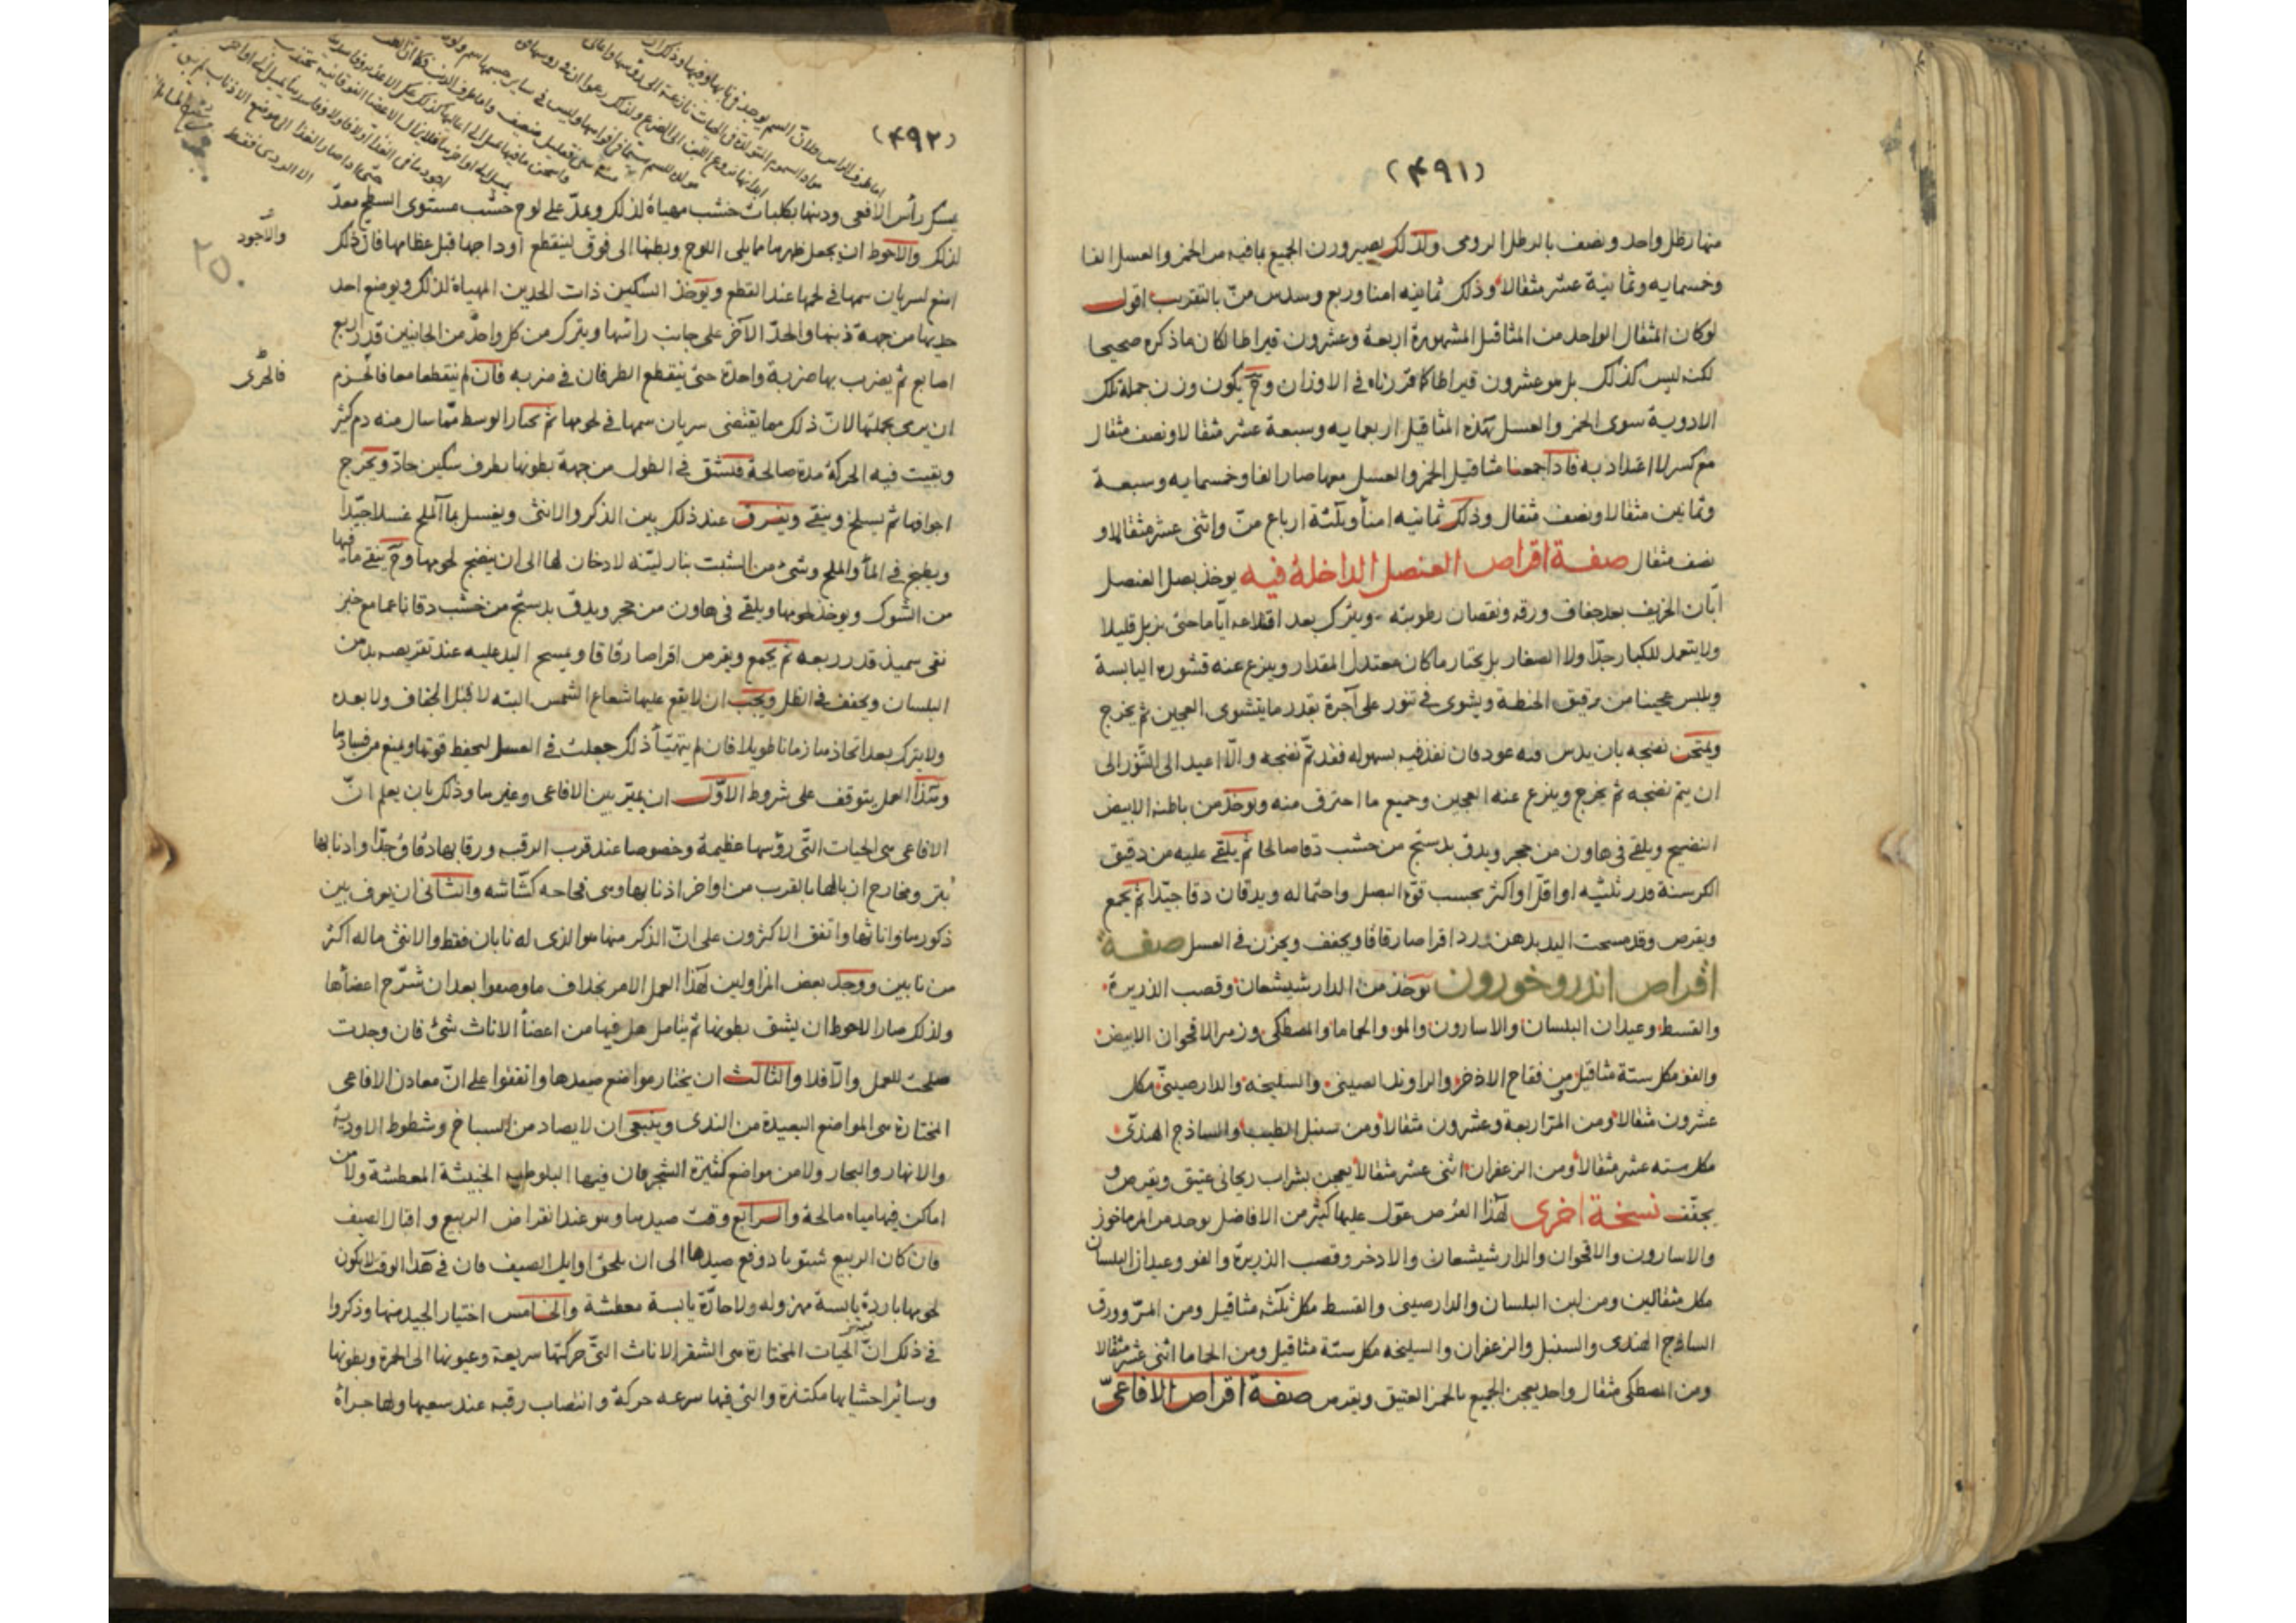 (۴۹۱)
منها رطل واحد ونصف بالرطل الرومى وكذلك يصير وزن الجميع بما فيه من الخمر والعسل الفا
وخمسمايه وثمانية عشر مثقالا وذلك ثمانيه امنا وربع وسدس منّ بالتقريب اقول
لوكان المثقال الواحد من المثاقيل المشهورة اربعة وعشرون قيراطا لكان ما ذكره صحيحا
لكن ليس كذلك بل هو عشرون قيراطا كما قررناه فى الاوزان وح يكون وزن جملة تلك
الادوية سوى الخمر والعسل بهذه المثاقيل اربعمايه وسبعة عشر مثقالا ونصف مثقال
مع كسر لا اعتداد به فاذا جمعنا مثاقيل الخمر والعسل معها صار الفا وخمسمايه وسبعة
وثمانين مثقالا ونصف مثقال وذلك ثمانيه امنأ وثلثة ارباع منّ واثنى عشر مثقالا و
نصف مثقال صفة اقراص العنصل الداخلة فيه يوخذ بصل العنصل
ابّان الخريف بعد جفاف ورقه ونقصان رطوبته ويترك بعد اقتلاعه ايّاما حتى يذبل قليلا
ولا يتعمد للكبار جدّا ولا الصغار بل يختار ما كان معتدل المقدار وينزع عنه قشوره اليابسة
ويلبس عجينا من دقيق الحنطة ويشوى فى تنور على آجرة بقدر ما يتشوى العجين ثم يخرج
ويمتحن نضجه بان يدس فيه عود فان نفذ فيه بسهوله فقد تمّ نضجه والّا اعيد الى التنّور الى
ان يتم نضجه ثم يخرج وينزع عنه العجين وجميع ما احترق منه ويوخذ من باطنه الابيض
النضيج ويلقى فى هاون من حجر ويدق بدستج من خشب دقا صالحا ثم يلقى عليه من دقيق
الكرسنة قدر ثلثيه او اقلّ او اكثر بحسب قوّة البصل واحتماله ويدقان دقا جيّدا ثم يجمع
ويقرص وقد مسحت اليد بدهن ورد اقراصا رقاقا ويجفف ويخزن فى العسل صفة
اقراص اندروخورون يوخذ من الدارشيشعان وقصب الذريرة
والقسط وعيدان البلسان والاسارون والمو والحماما والمصطكى وزهر الاقحوان الابيض
والفو مكل ستة مثاقيل من فقاح الاذخر والراوند الصينى والسليخه والدارصينى مكل
عشرون مثقالا ومن المرّ اربعة وعشرون مثقالا ومن سنبل الطيب والساذج الهندىّ
مكل سته عشر مثقالا ومن الزعفران اثنى عشر مثقالا يعجن بشراب ريحانى عتيق ويقرص و
يجفّف نسخة اخرى لهذا القرص عوّل عليها كثير من الافاضل يوخذ من المرماخوز
والاسارون والاقحوان والدارشيشعان والاذخر وقصب الذريرة والفو وعيدان البلسان
مكل مثقالين ومن لبن البلسان والدارصينى والقسط مكل ثلثة مثاقيل ومن المرّ وورق
الساذج الهندى والسنبل والزعفران والسليخه مكل ستّة مثاقيل ومن الحماما اثنى عشر مثقالا
ومن المصطكى مثقال واحد يعجن الجميع بالخمر العتيق ويقرص صفة اقراص الافاعىّ
(۴۹۲)
يمسك رأس الافعى وذنبها بكلبات خشب مهياة لذلك ويمدّ على لوح خشب مستوى السطح معدّ
لذلك والاحوط ان يجعل ظهرها مما يلى اللوح وبطنها الى فوق لينقطع اوداجها قبل عظامها فان ذلك
والاجود
امنع لسريان سمها فى لحمها عند القطع ويوخذ السكين ذات الحدين المهياة لذلك ويوضع احد
حديها من جهة ذنبها والحدّ الآخر على جانب راسها ويترك من كل واحد من الجانبين قدر اربع
اصابع ثم يضرب بها ضربة واحدة حتى ينقطع الطرفان فى ضربه فان لم ينقطعا معا فالحزم
فالحرى
ان يرمى بجملتها لانّ ذلك مما يقتضى سريان سمها فى لحومها ثم يختار الوسط ممّا سال منه دم كثير
وبقيت فيه الحركة مدة صالحة فيشق فى الطول من جهة بطونها بطرف سكين حادّ ويخرج
اجوافها ثم يسلخ وينقى ويفرق عند ذلك بين الذكر والانثى ويغسل بمآ الملح غسلا جيّدا
ويطبخ فى المأ والملح وشئ من الشبت بنار ليّنه لا دخان لها الى ان ينضج لحومها وح ينقى ما فيها
من الشوك ويوخذ لحومها ويلقى فى هاون من حجر ويدق بدستج من خشب دقا ناعما مع خبز
نقى سميذ قدر ربعه ثم يجمع ويقرص اقراصا رقاقا ويمسح اليد عليه عند تقريصه بدهن
البلسان ويجفف فى الظل ويجب ان لا يقع عليها شعاع الشمس البته لا قبل الجفاف ولا بعده
ولا يترك بعد اتخاذها زمانا طويلا فان لم يتهيّأ ذلك جعلت فى العسل ليحفظ قوتها ويمنع من فسادها
وهذا العمل يتوقف على شروط الاوّل ان يميّز بين الافاعى وغيرها وذلك بان يعلم انّ
الافاعى هى الحيات التّى رؤسها عظيمة وخصوصا عند قرب الرقبه ورقابها دقاق جدّا واذنابها
بتر ومخارج اثفالها بالقرب من اواخر اذنابها وهى فحاحه كشّاشه والثانى ان يعرف بين
ذكورها واناثها واتفق الاكثرون على انّ الذكر منها هو الذى له نابان فقط والانثى ما له اكثر
من نابين ووجد بعض المزاولين لهذا العمل الامر بخلاف ما وصفوا بعد ان شرّح اعضأها
ولذلك صار الاحوط ان يشق بطونها ثم يتامل هل فيها من اعضأ الاناث شئ فان وجدت
صلحت للعمل والّا فلا والثالث ان يختار مواضع صيدها واتفقوا على انّ معادن الافاعى
المختارة هى المواضع البعيدة من الندى وينبغى ان لا يصاد من السباخ وشطوط الاودية
والانهار والبحار ولا من مواضع كثيرة الشجر فان فيها البلوطيه الخبيثة المعطشة ولا من
اماكن فيها مياه مالحة والرابع وقت صيدها وهو عند انقراض الربيع واقبال الصيف
فان كان الربيع شتويا دوفع صيدها الى ان يلحق اوايل الصيف فان فى هذا الوقت لا يكون
لحومها باردة يابسة مهزوله ولا حارّة يابسة معطشة والخامس اختيار الجيد منها وذكروا
فى ذلك انّ الحيات المختارة هى الشقر الاناث التّى حركتها سريعة وعيونها الى الحمرة وبطونها
وسائر احشايها مكتنزة والتى فيها سرعه حركة وانتصاب رقبه عند سعيها ولها جرأة